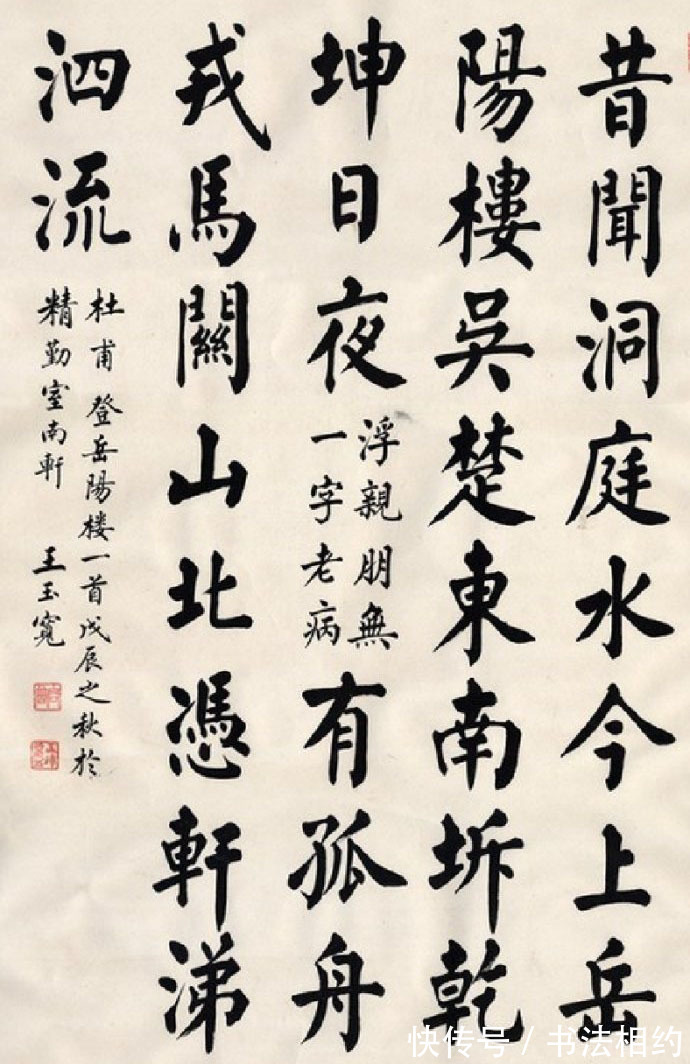 昔聞洞庭水今上岳
陽樓吳楚東南坼乾
坤日夜
浮親朋無
一字老病
有孤舟
戎馬關山北憑軒涕
泗流
杜甫登岳陽楼一首戊辰之秋於
精勤室南軒 王玉寬
快传号 / 书法相约